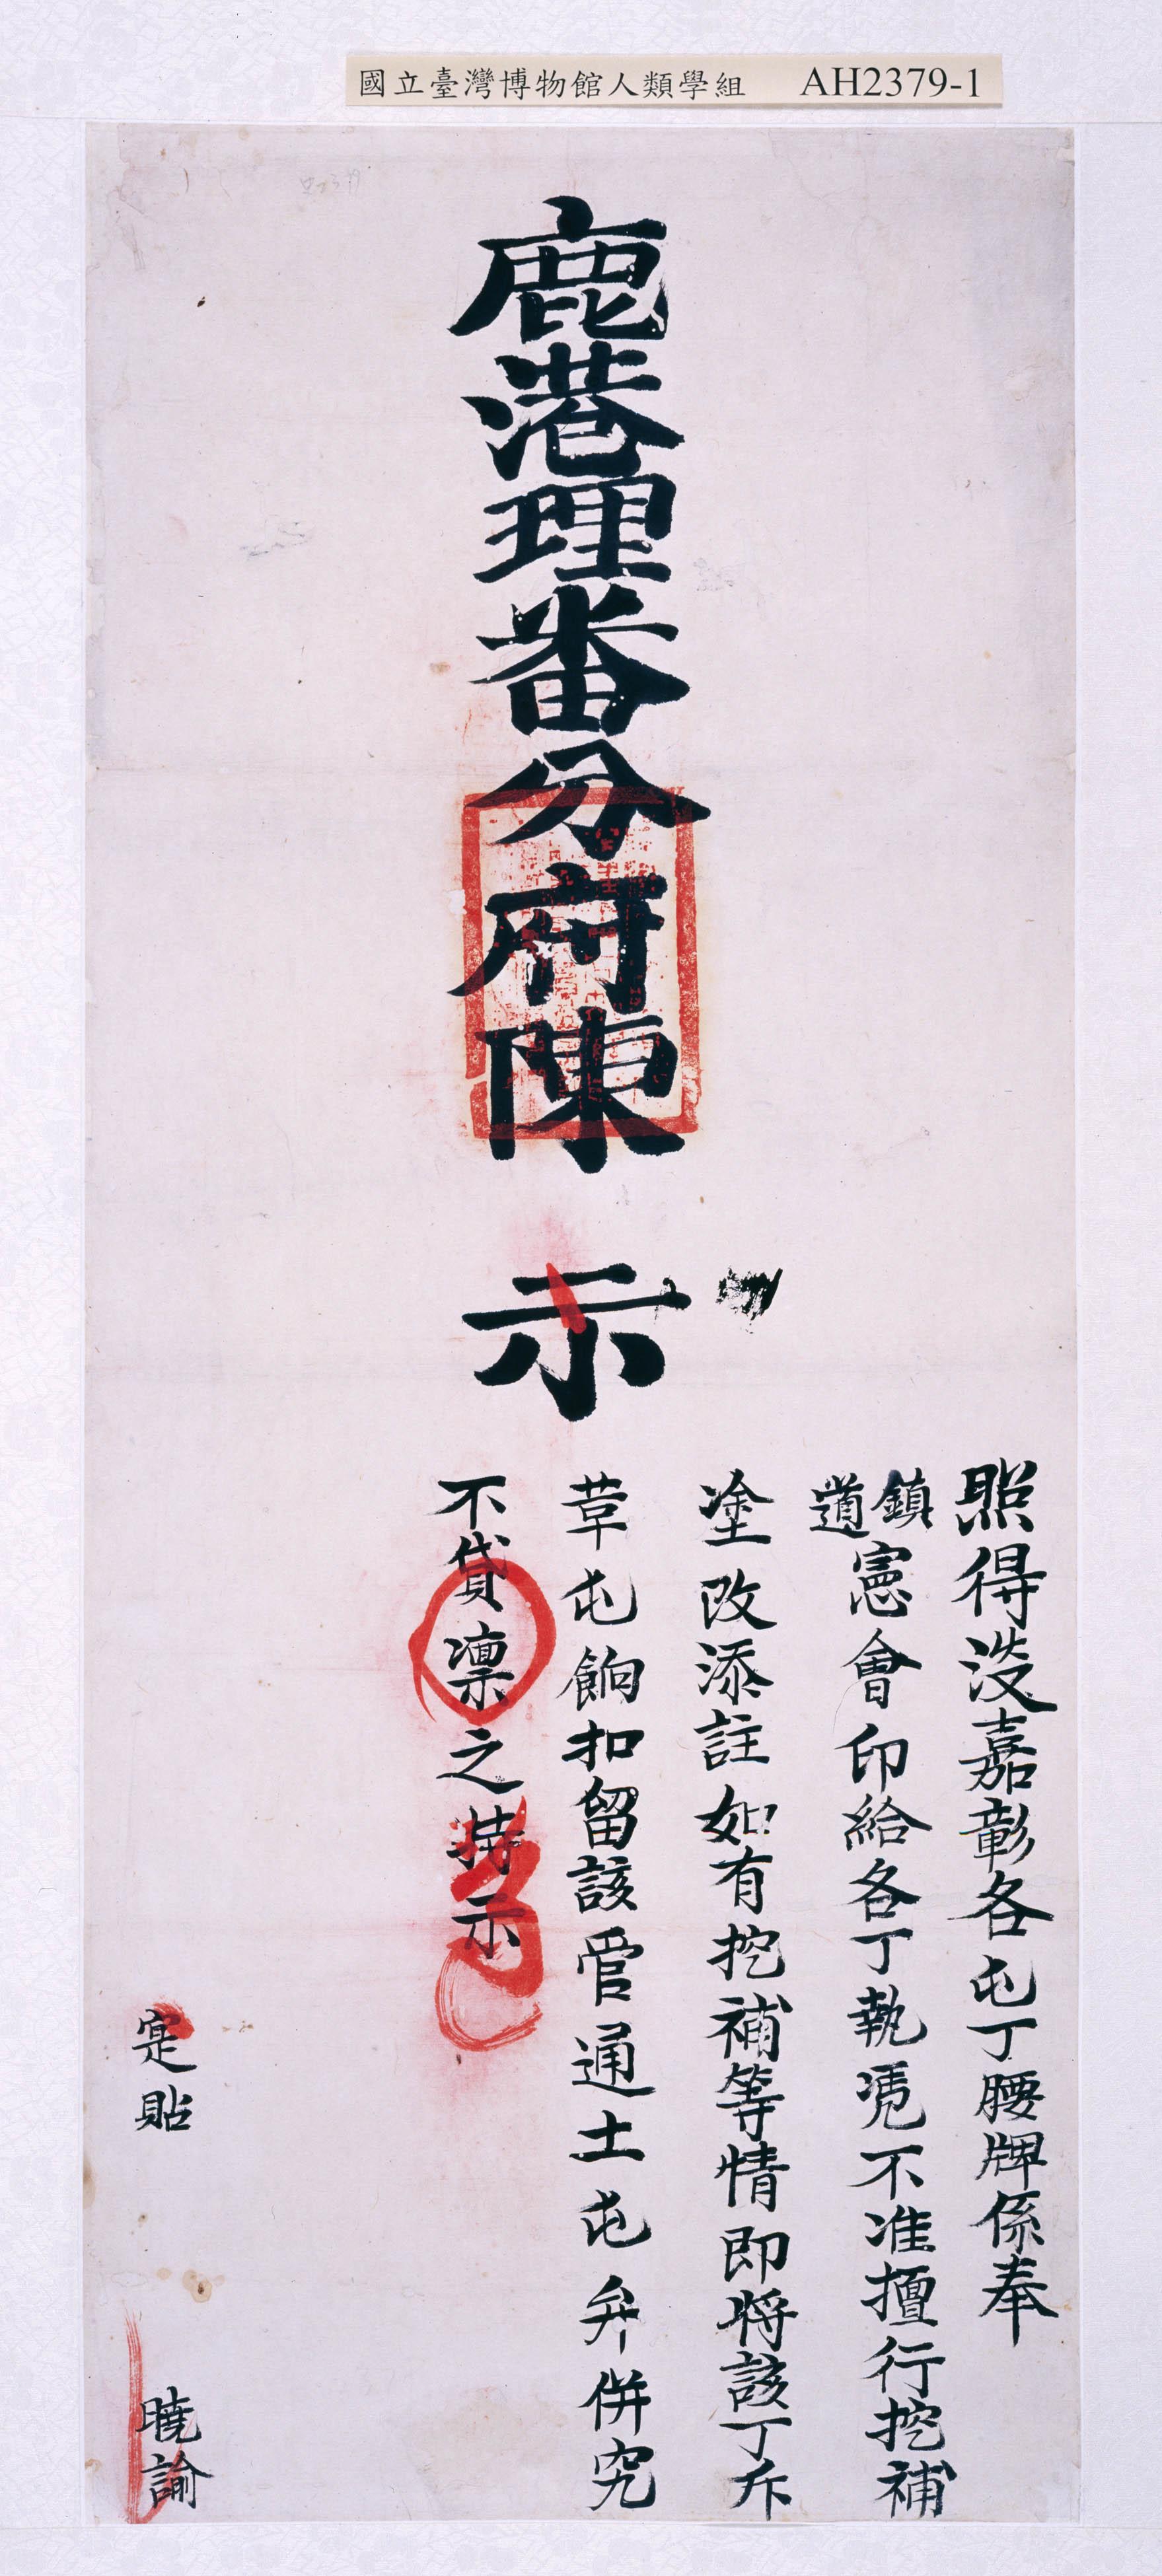 國立臺灣博物館人類學組 AH2379-1
鹿港理番分府陳 示
照得淡嘉彰各屯丁腰牌係奉
鎮
道
憲會印給各丁執凭不准擅行挖補
塗改添註如有挖補等情即将該丁斥
革屯餉扣留該管通土屯弁併究
不貸凛之特示
寔貼 曉諭